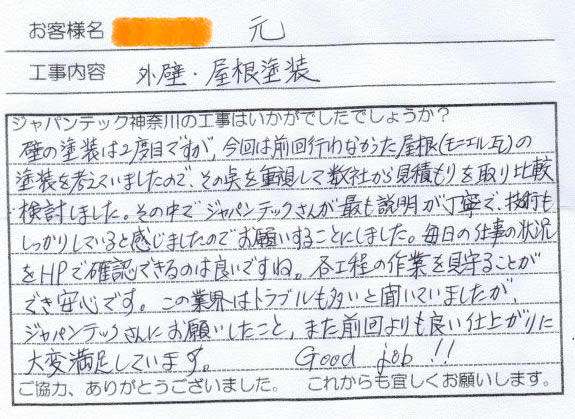 お客様名 元
工事内容 外壁・屋根塗装
ジャパンテック神奈川の工事はいかがでしたでしょうか？
壁の塗装は2度目ですが、今回は前回行わなかった屋根(モニエル瓦)の
塗装を考えていましたので、その点を重視して数社から見積もりを取り比較
検討しました。その中でジャパンテックさんが最も説明が丁寧で、技術も
しっかりしていると感じましたのでお願いすることにしました。毎日の仕事の状況
をHPで確認できるのは良いですね。各工程の作業を見守ることが
でき安心です。この業界はトラブルも多いと聞いていましたが、
ジャパンテックさんにお願いしたこと、また前回よりも良い仕上がりに
大変満足しています。 Good job!!
ご協力、ありがとうございました。 これからも宜しくお願いします。